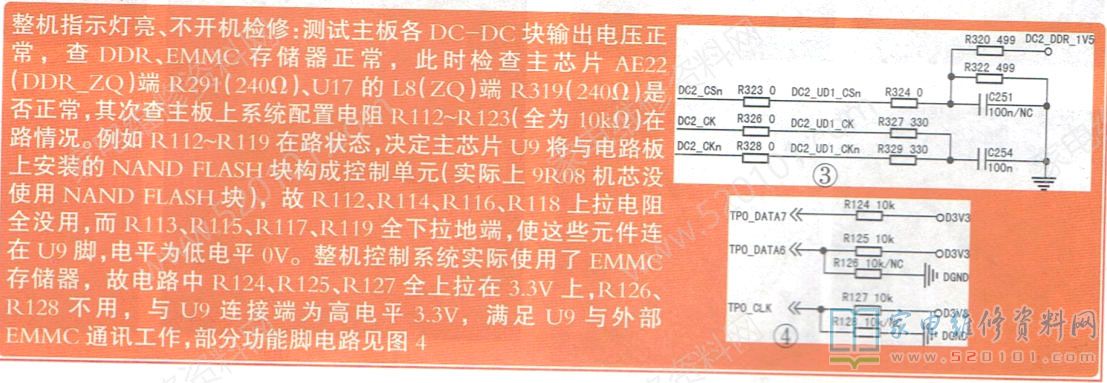 整机指示灯亮、不开机检修:测试主板各 DC-DC 块输出电压正
常，查 DDR、EMMC 存储器正常，此时检查主芯片 AE22
(DDR_ZQ)端 R291(240Ω)、U17 的 L8(ZQ)端 R319(240Ω)是
否正常,其次查主板上系统配置电阻 R112~R123(全为 10kΩ)在
路情况。例如 R112~R119 在路状态,决定主芯片 U9 将与电路板
上安装的 NAND FLASH 块构成控制单元(实际上 9R08 机芯没
使用 NAND FLASH 块)，故 R112、R114、R116、R118 上拉电阻
全没用,而 R113、R115、R117、R119 全下拉地端,使这些元件连
在 U9 脚,电平为低电平 0V。整机控制系统实际使用了 EMMC
存储器，故电路中 R124、R125、R127 全上拉在 3.3V 上,R126、
R128 不用，与 U9 连接端为高电平 3.3V，满足 U9 与外部
EMMC 通讯工作,部分功能脚电路见图 4
R320 499 DC2_DDR_1V5
R322 499
DC2_CSn R323 0 DC2_UD1_CSn R324 0
C251
100n/NC
DC2_CK R326 0 DC2_UD1_CK R327 330
DC2_CKn R328 0 DC2_UD1_CKn R329 330
C254
100n
③
TPO_DATA7 R124 10k D3V3
TPO_DATA6 R125 10k D3V3
R126 10k/NC DGND
TPO_CLK R127 10k D3V3
R128 10k/NC DGND
④
家电维修资料网
www.520101.com